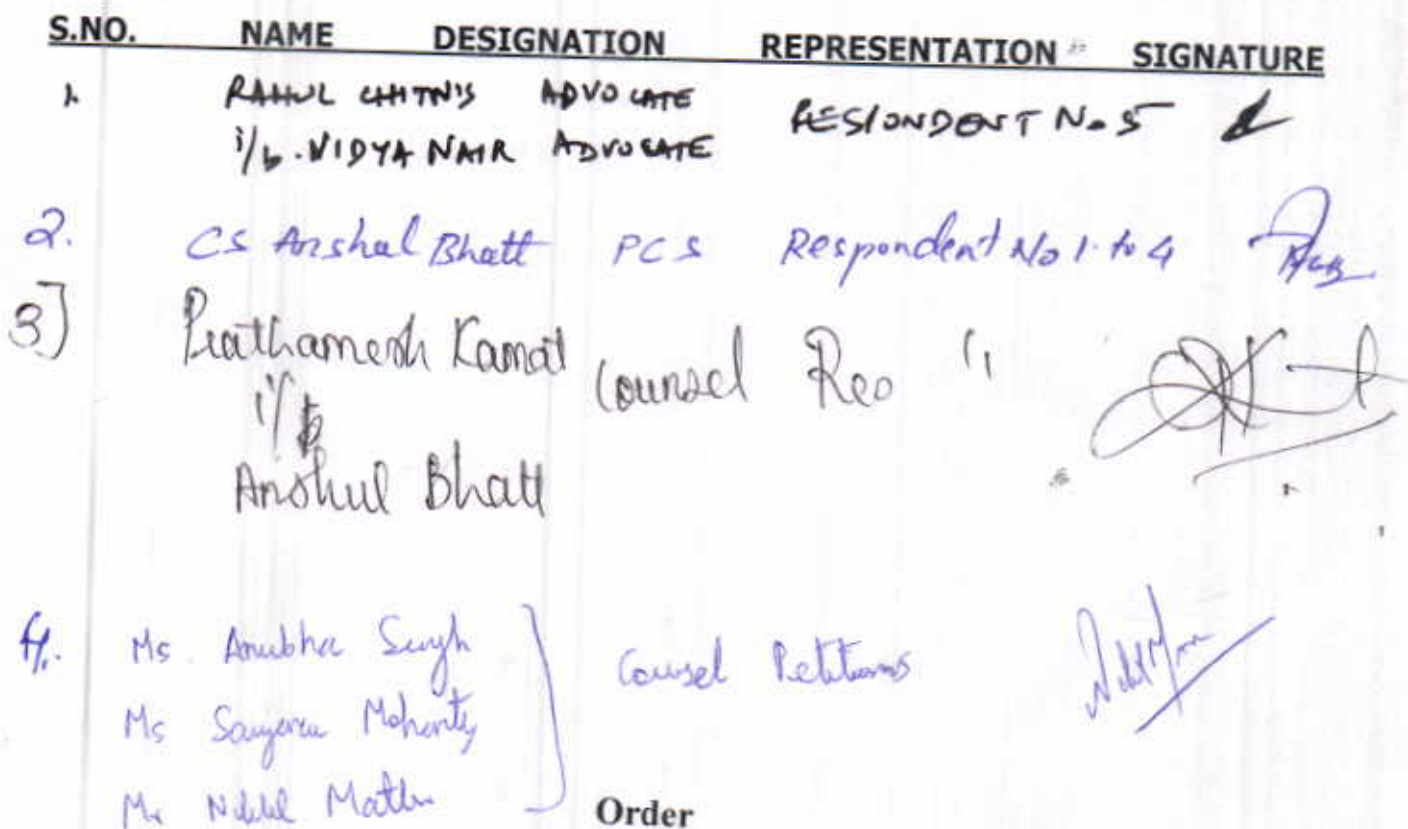 S.NO. NAME DESIGNATION REPRESENTATION SIGNATURE
1. RAHUL CHITNIS ADVOCATE RESPONDENT No 5
i/b. VIDYA NAIR ADVOCATE
2. CS Anshul Bhatt PCS Respondent No 1 to 4
3] Prathamesh Kamat Counsel Res "
i/b
Anshul Bhatt
4. Ms Anubha Singh Counsel Petitioners
Ms Mohanty
Mr Nikhil
Order